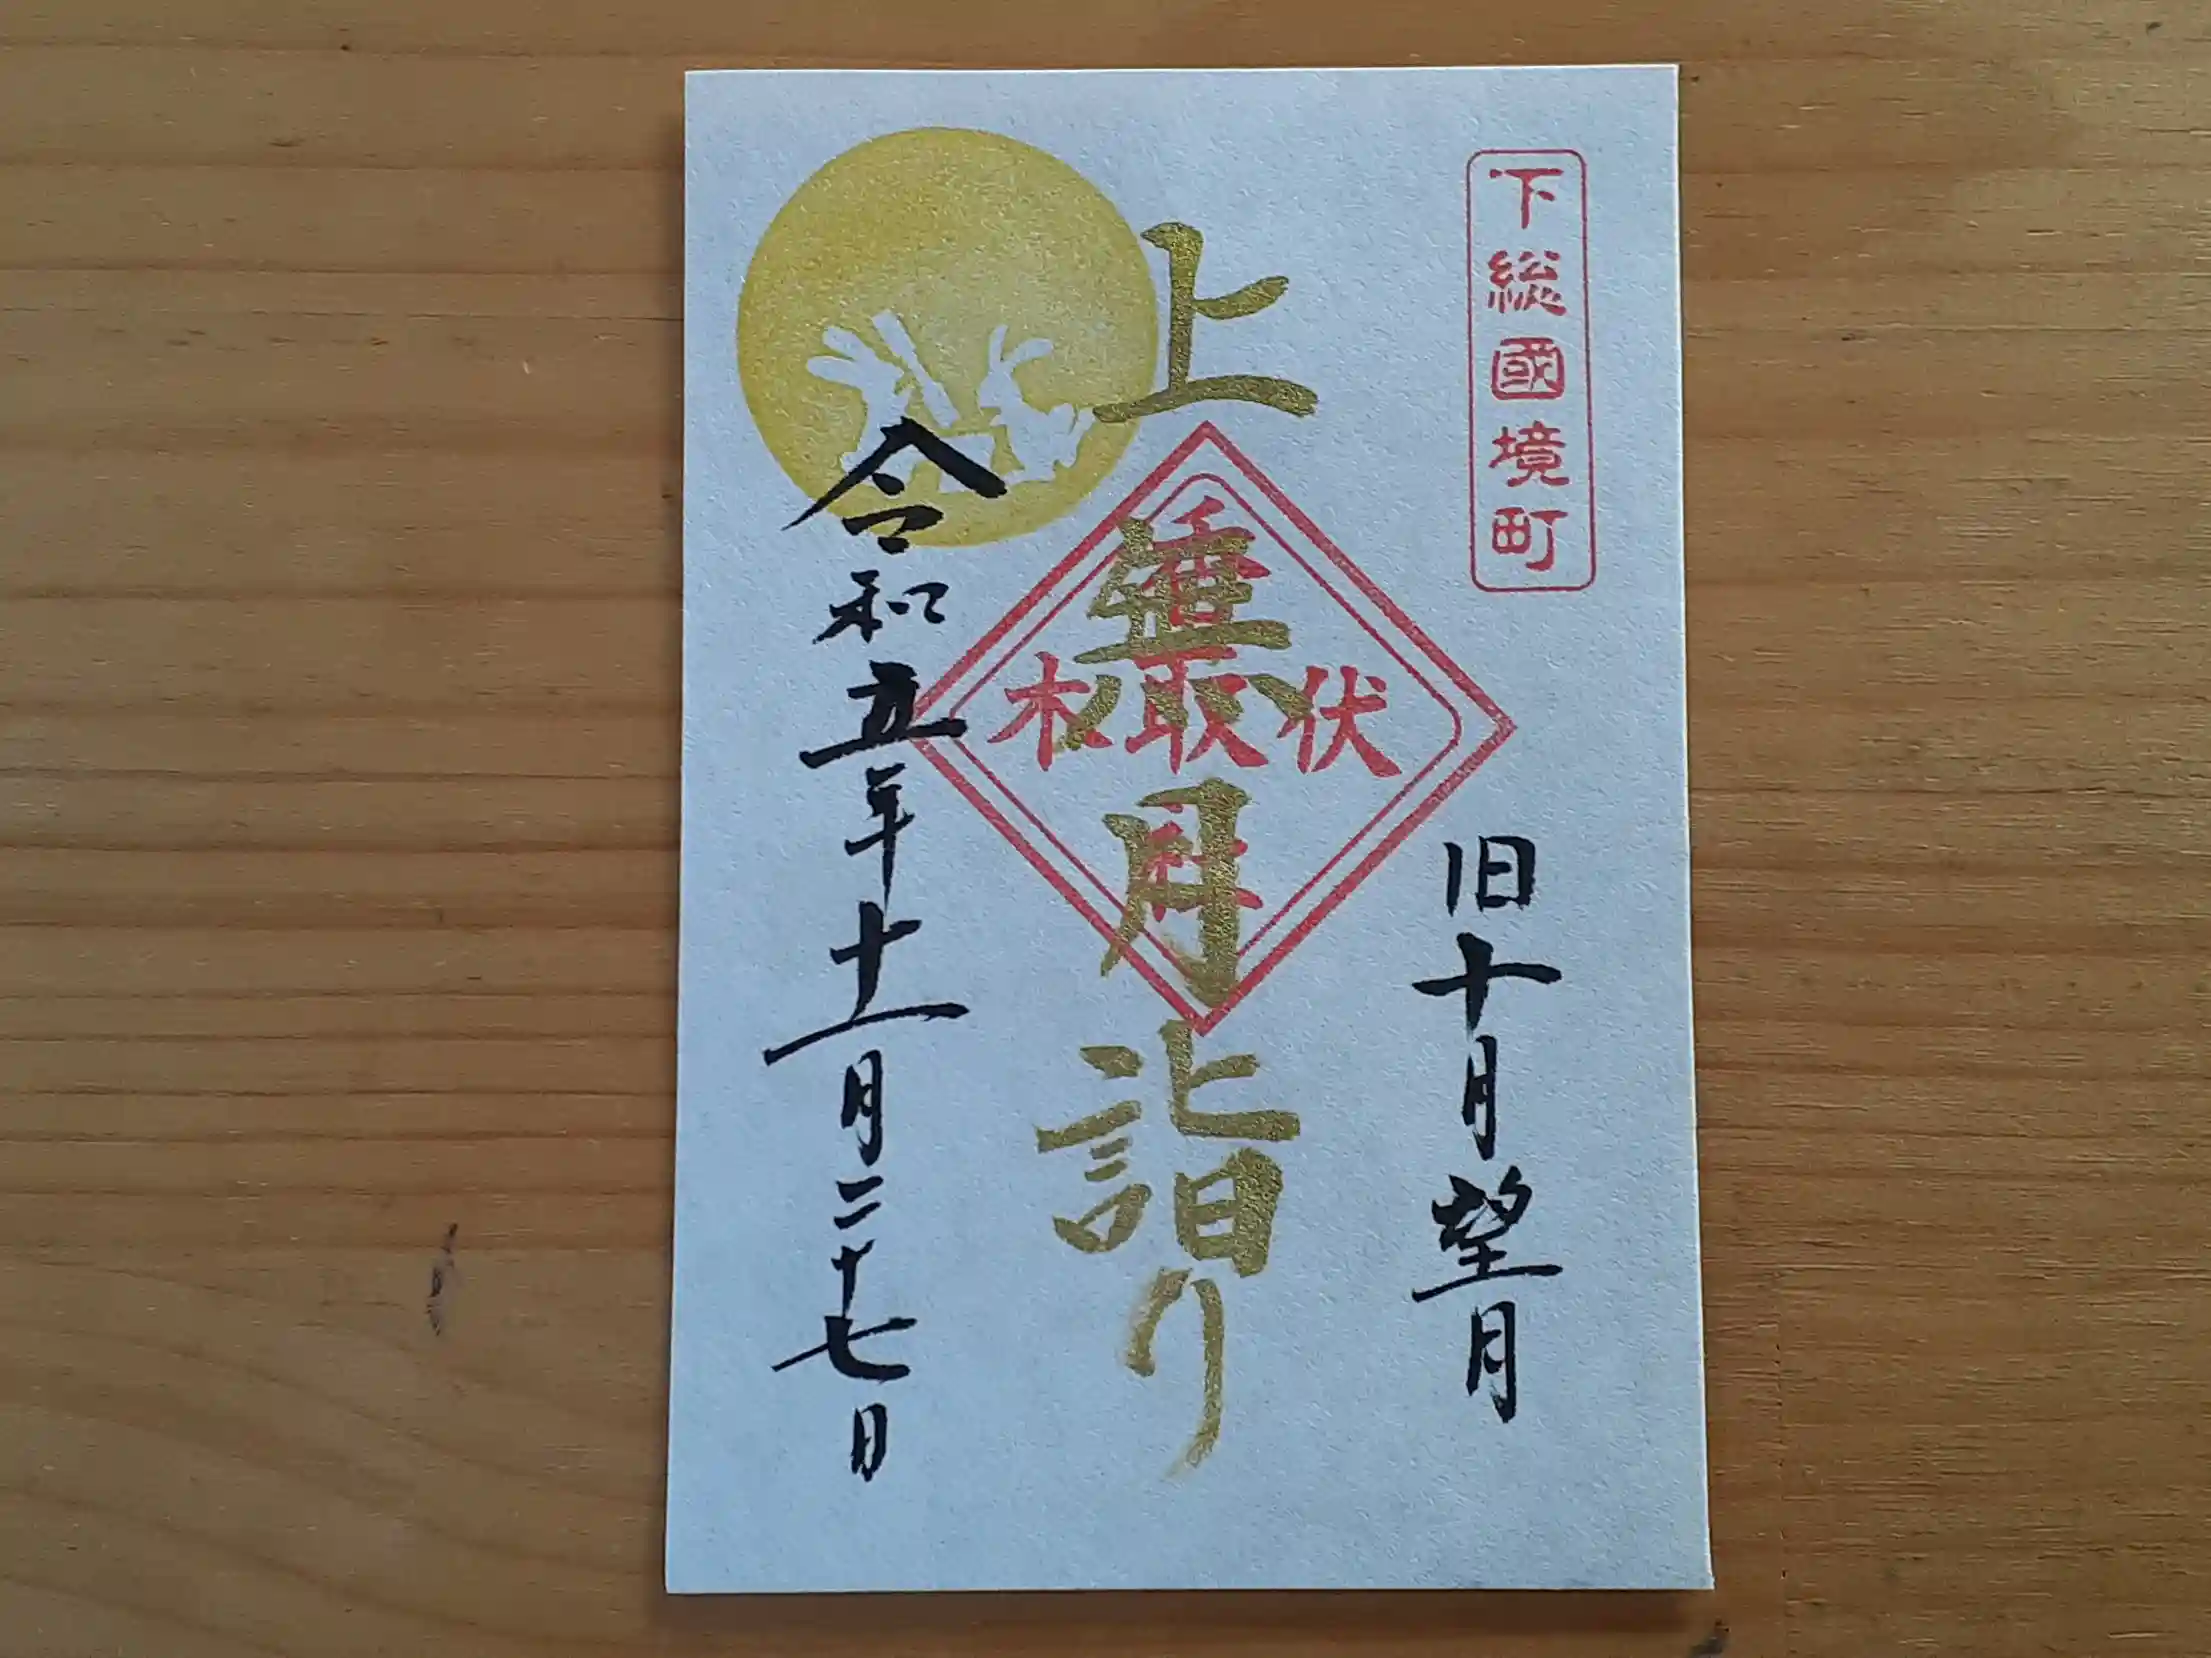 下総國境町
旧十月望月
上無月詣り
伏木
香取社
令和五年十一月二十七日